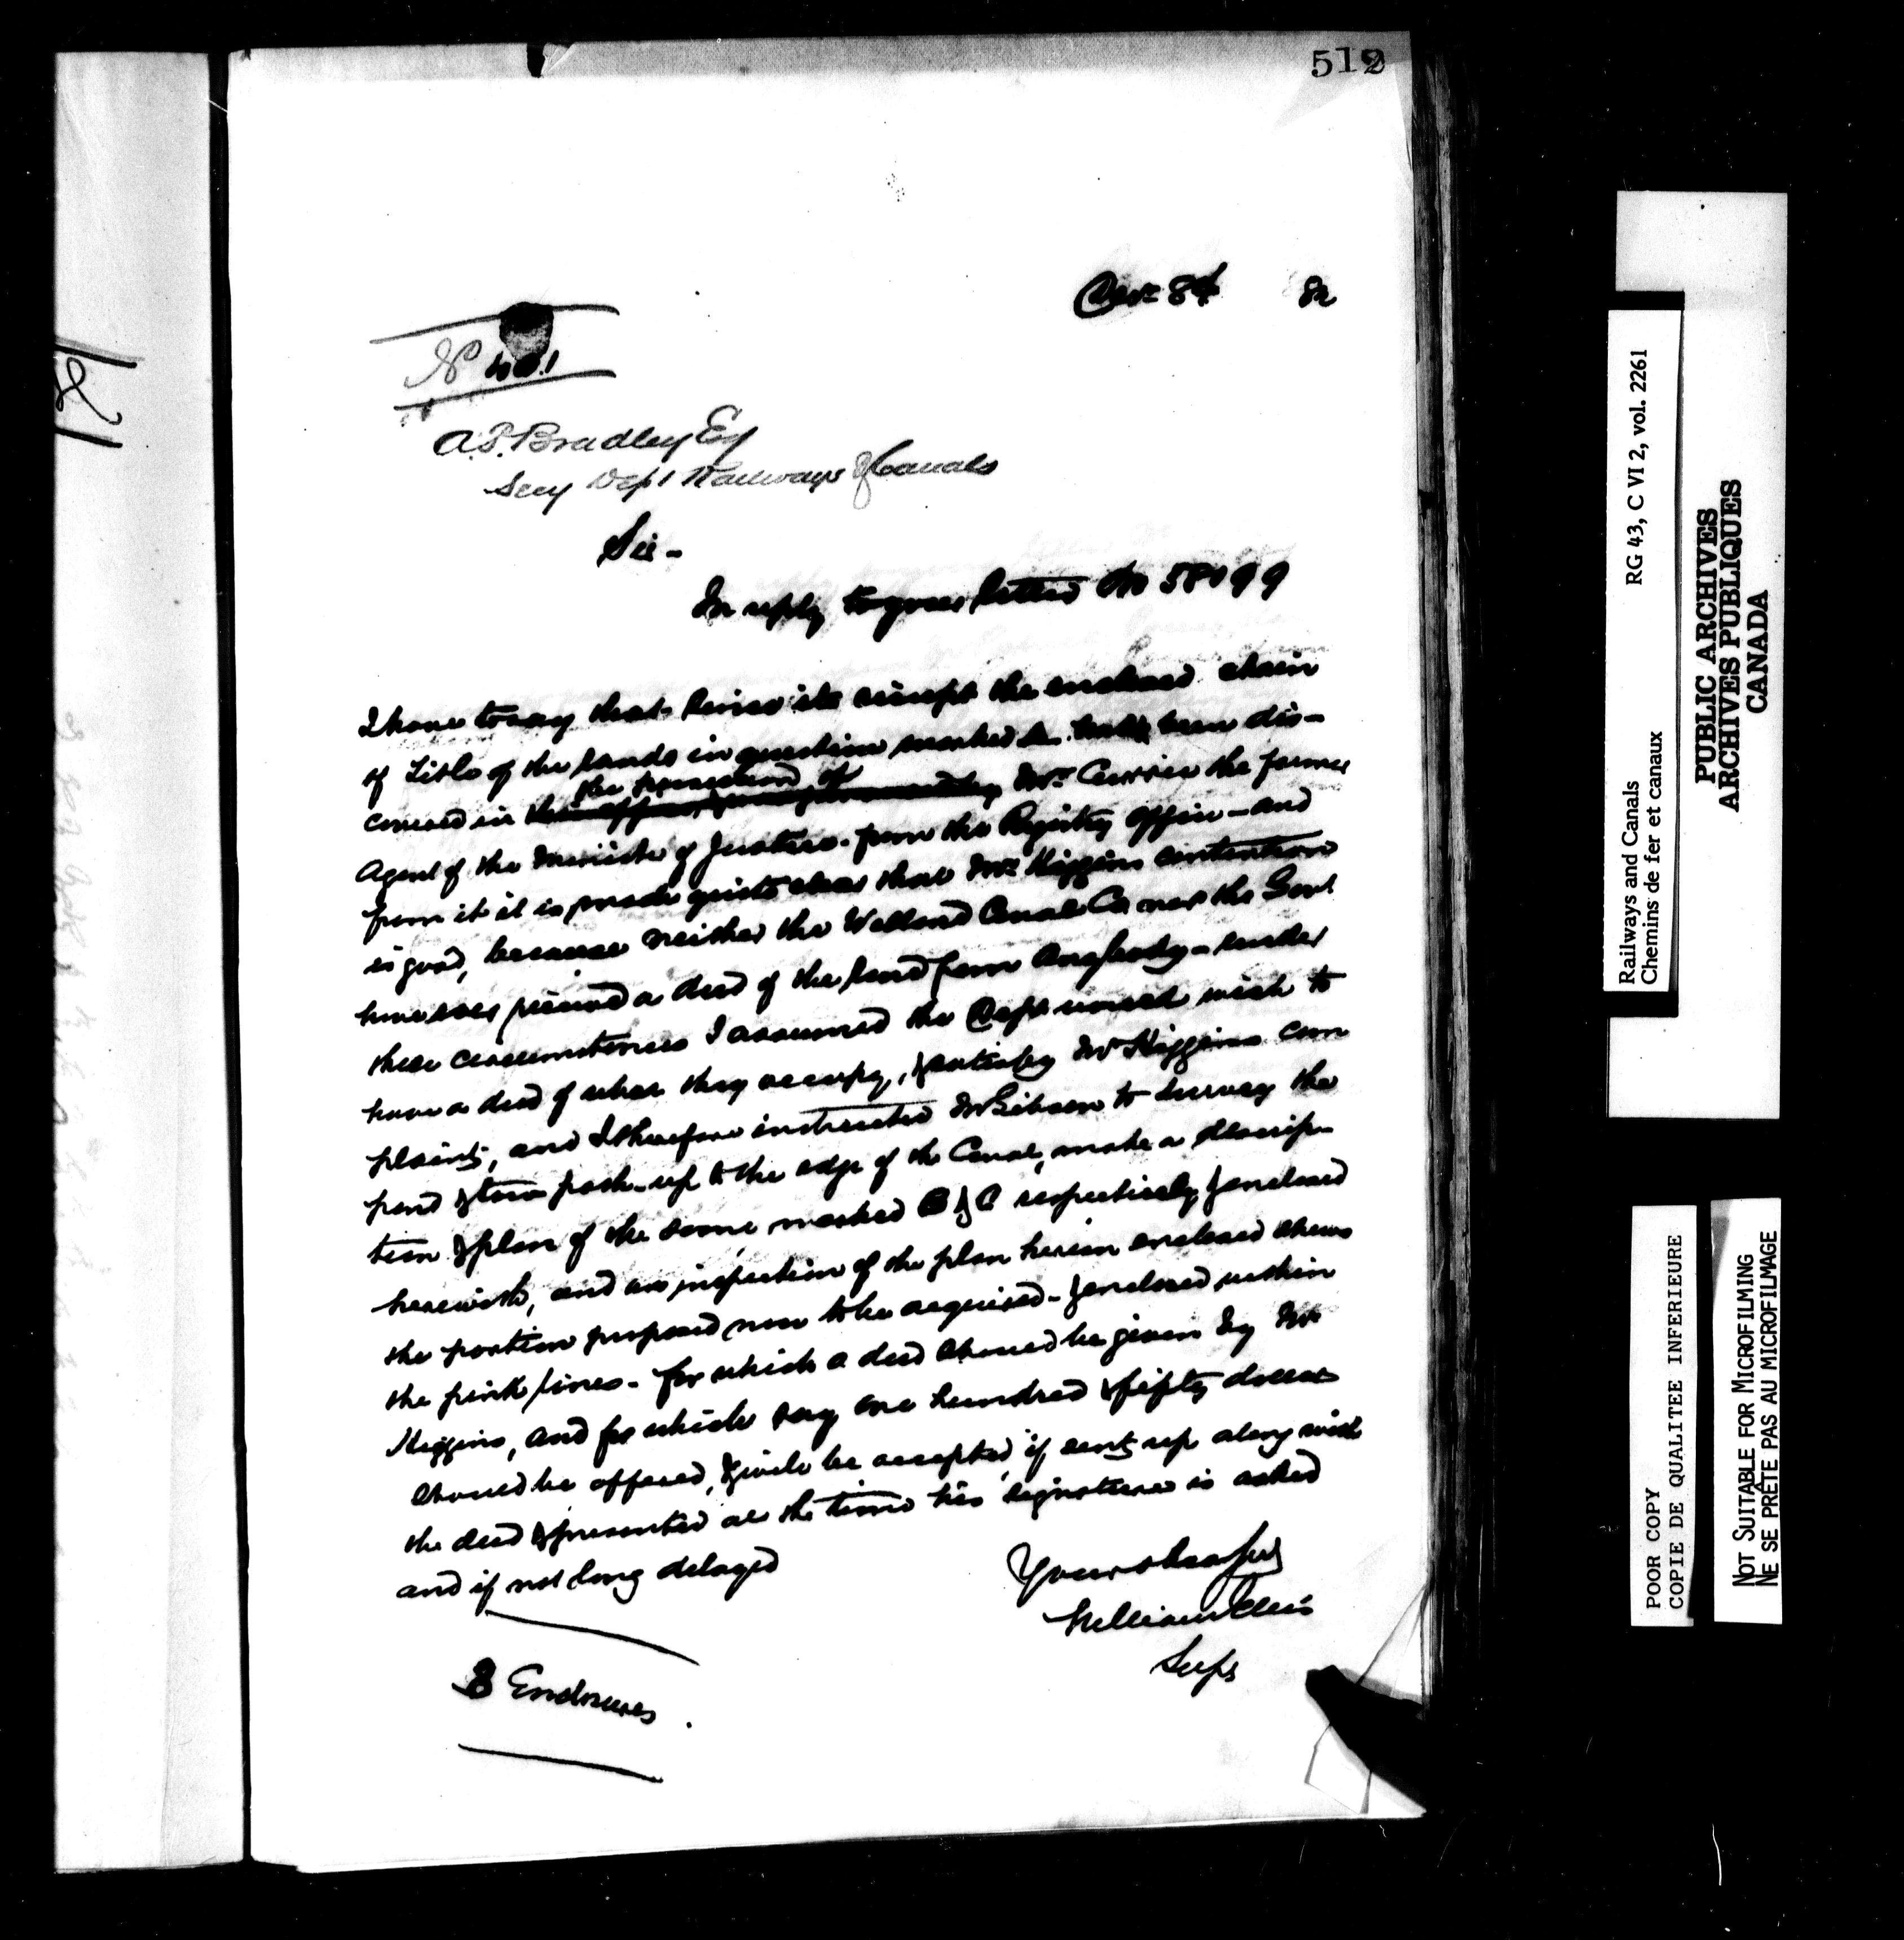 512
Decr 8th 82
No 401
A.P. Bradley Esq
Secy Dept Railways & Canals
Sir -
In reply to your letter No
I have to say that since its receipt the enclosed chain
of Title of the lands in question marked A has been dis-
the possession of
covered in Mr Currie the former
Agent of the Minister of Justice - from the Registry Office - and
from it it is made quite clear that Mr Higgins contention
is good, because neither the Welland Canal Co nor the Govt
have ever received a deed of the land from Anybody - under
these circumstances I assumed the Dept would wish to
have a deed of what they occupy, & satisfy Mr Higgins com
plaint, and I therefore instructed Mr Gibson to survey the
pond & tow path up to the edge of the Canal, make a descrip-
tion & plan of the same, marked B & C respectively & enclosed
herewith, and an inspection of the plan herein enclosed shews
the portion proposed now to be acquired - & enclosed within
the pink lines - for which a deed should be given by Mr
Higgins, and for which say one hundred & fifty dollars
should be offered, & will be accepted, if sent up along with
the deed & presented at the time his signature is asked
and if not long delayed
William Ellis
Supt
3 Enclosures.
Railways and Canals RG 43, C VI 2, vol. 2261
Chemins de fer et canaux
PUBLIC ARCHIVES
ARCHIVES PUBLIQUES
CANADA
POOR COPY
COPIE DE QUALITEE INFERIEURE
NOT SUITABLE FOR MICROFILMING
NE SE PRÊTE PAS AU MICROFILMAGE